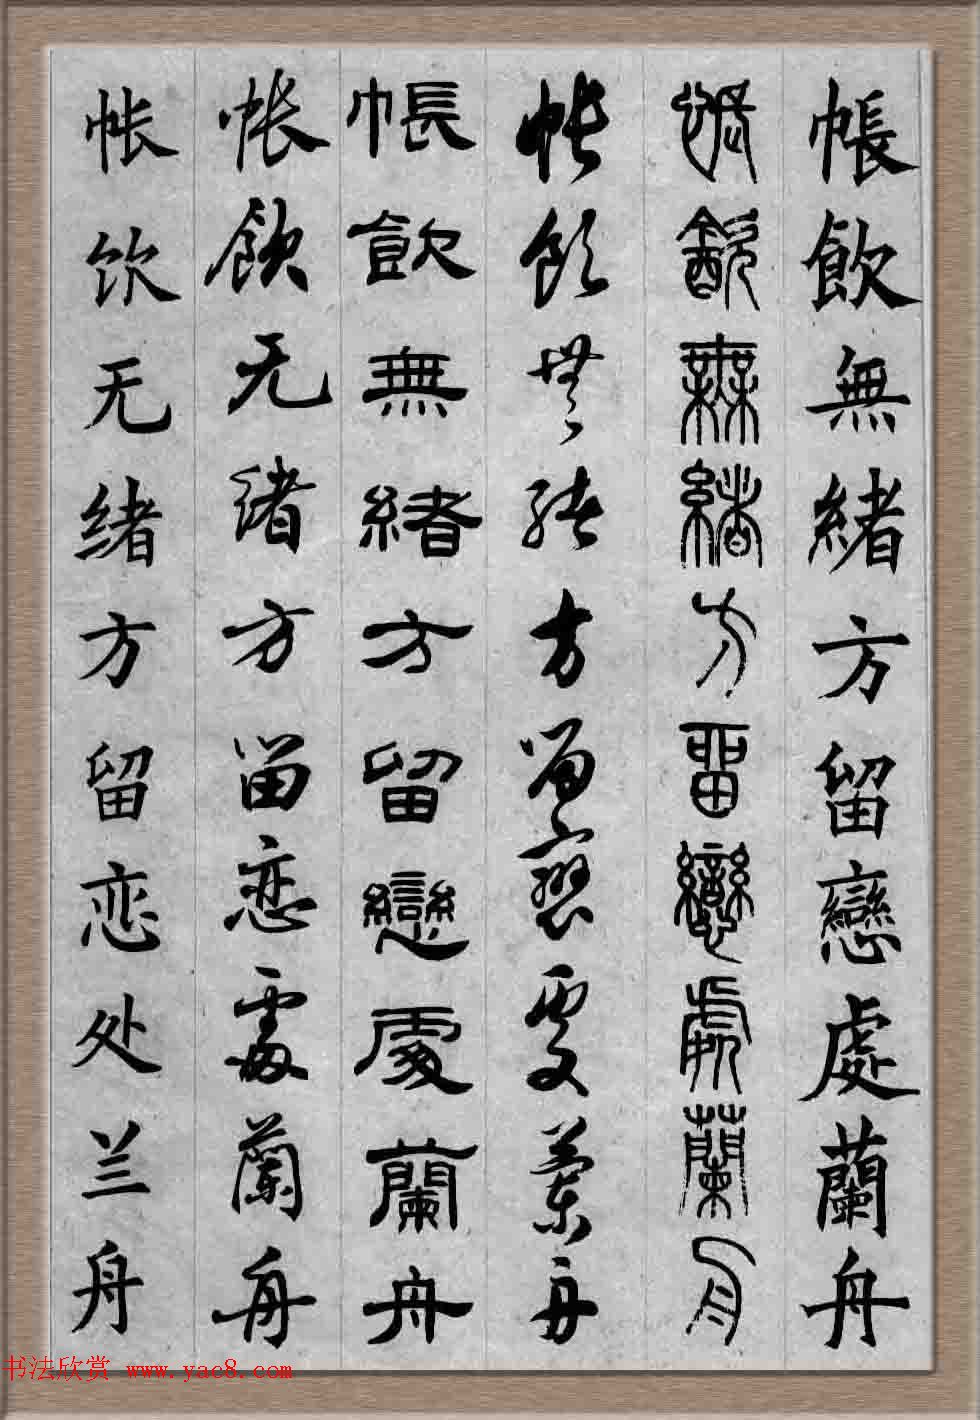 帳飲無緒方留戀處蘭舟
帳飲無緒方留戀處蘭舟
帐飲無緒方留戀處蘭舟
帳飲無緒方留戀處蘭舟
帐飲无绪方留恋處蘭舟
帐饮无绪方留恋处兰舟
书法欣赏 www.yac8.com